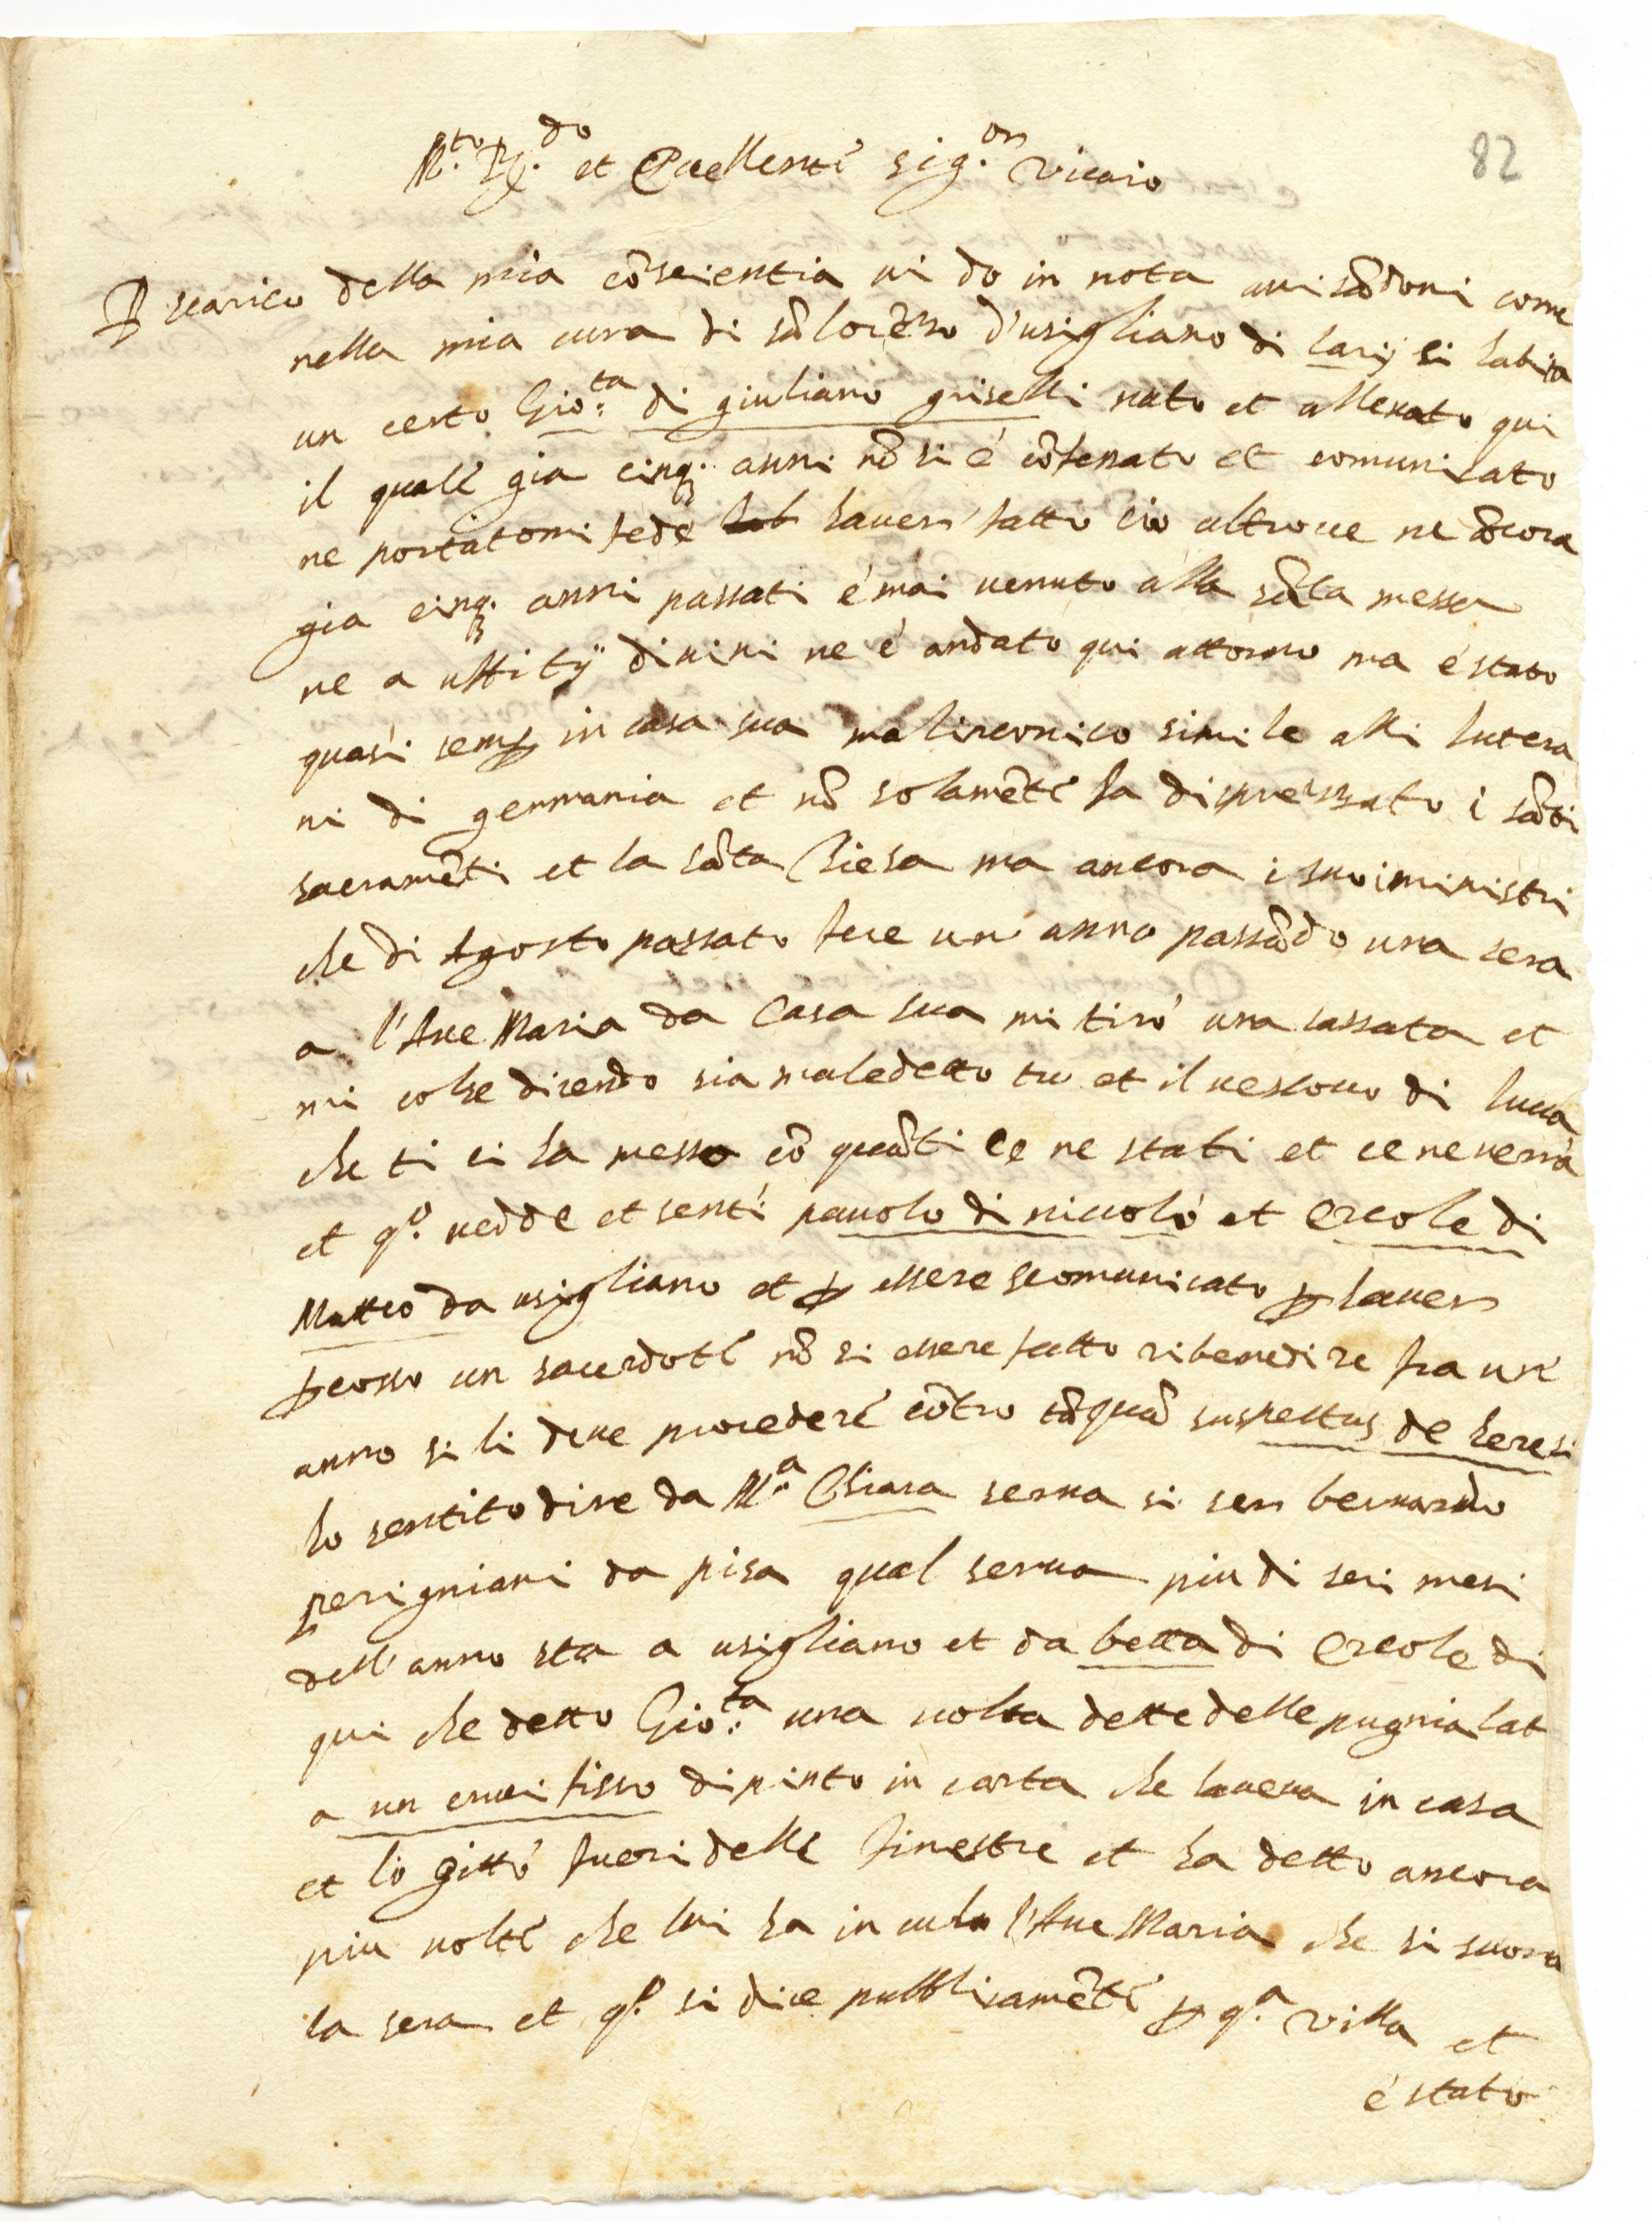 82
M.to R.do et Eccellente sig.or Vicario
P scarico della mia cōscientia vi do in nota avisādovi come
nella mia cura di sā lorēso d'usigliano di larij si habita
un certo Gio:ta di giuliano griselli nato et allevato qui
il quale gia cinq; anni nō si è cōfessato et comunicato
ne portatomi fede hab haver fatto cio altrove ne ācora
gia cinq; anni passati è mai venuto alla sāta messa
ne a uffitij divini ne è andato qui attorno ma è stato
quasi semp in casa sua malinconico simile alli lutera
ni di germania et nō solamēte ha disprezzato i sāti
sacramēti et la sāta Chiesa ma ancora i suoi ministri
che di Agosto passato fece un' anno passādo una sera
a l'Ave Maria da Casa sua mi tirò una sassata et
mi colse dicendo sia maledetto tu et il vescovo di lucca
che ti ci ha messo cō quāti ce ne stati et ce ne verrà
et q.o vedde et sentì pauolo di niccolò et Ercole di
Matteo da usigliano et p essere scomunicato p haver
pcosso un sacerdote nō si essere fatto ribenedire fra un'
anno si li deve procedere cōtro tāquā suspettus de heresi
ho sentito dire da M.a Chiara serva si ser bernardo
perigniani da pisa qual serva piu di sei mesi
dell'anno sta a usigliano et da betta di Ercole di
qui che detto Gio:ta una volta dette delle pugnialat
a un crucifisso dipinto in carta che haveva in casa
et lo gittò fuori delle finestre et ha detto ancora
piu volte che lui ha in culo l'Ave Maria che si suona
la sera et q.o si dice pubblicamēte p q.a villa et
è stato